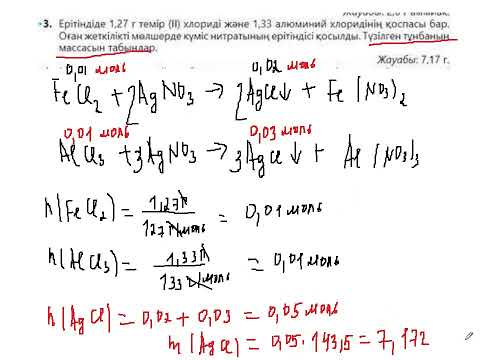 Жауабы: 2,87 г
•3. Ерітіндіде 1,27 г темір (II) хлориді және 1,33 алюминий хлоридінің қоспасы бар.
Оған жеткілікті мөлшерде күміс нитратының ерітіндісі қосылды. Түзілген тұнбаның
массасын табыңдар.
Жауабы: 7,17 г.
0,01 моль 0,02 моль
FeCl₂ + 2AgNO₃ → 2AgCl↓ + Fe(NO₃)₂
0,01 моль 0,03 моль
AlCl₃ + 3AgNO₃ → 3AgCl↓ + Al(NO₃)₃
n(FeCl₂) = 1,27г / 127г/моль = 0,01 моль
n(AlCl₃) = 1,33г / 133г/моль = 0,01 моль
n(AgCl) = 0,02 + 0,03 = 0,05 моль
m(AgCl) = 0,05 · 143,5 = 7,17г